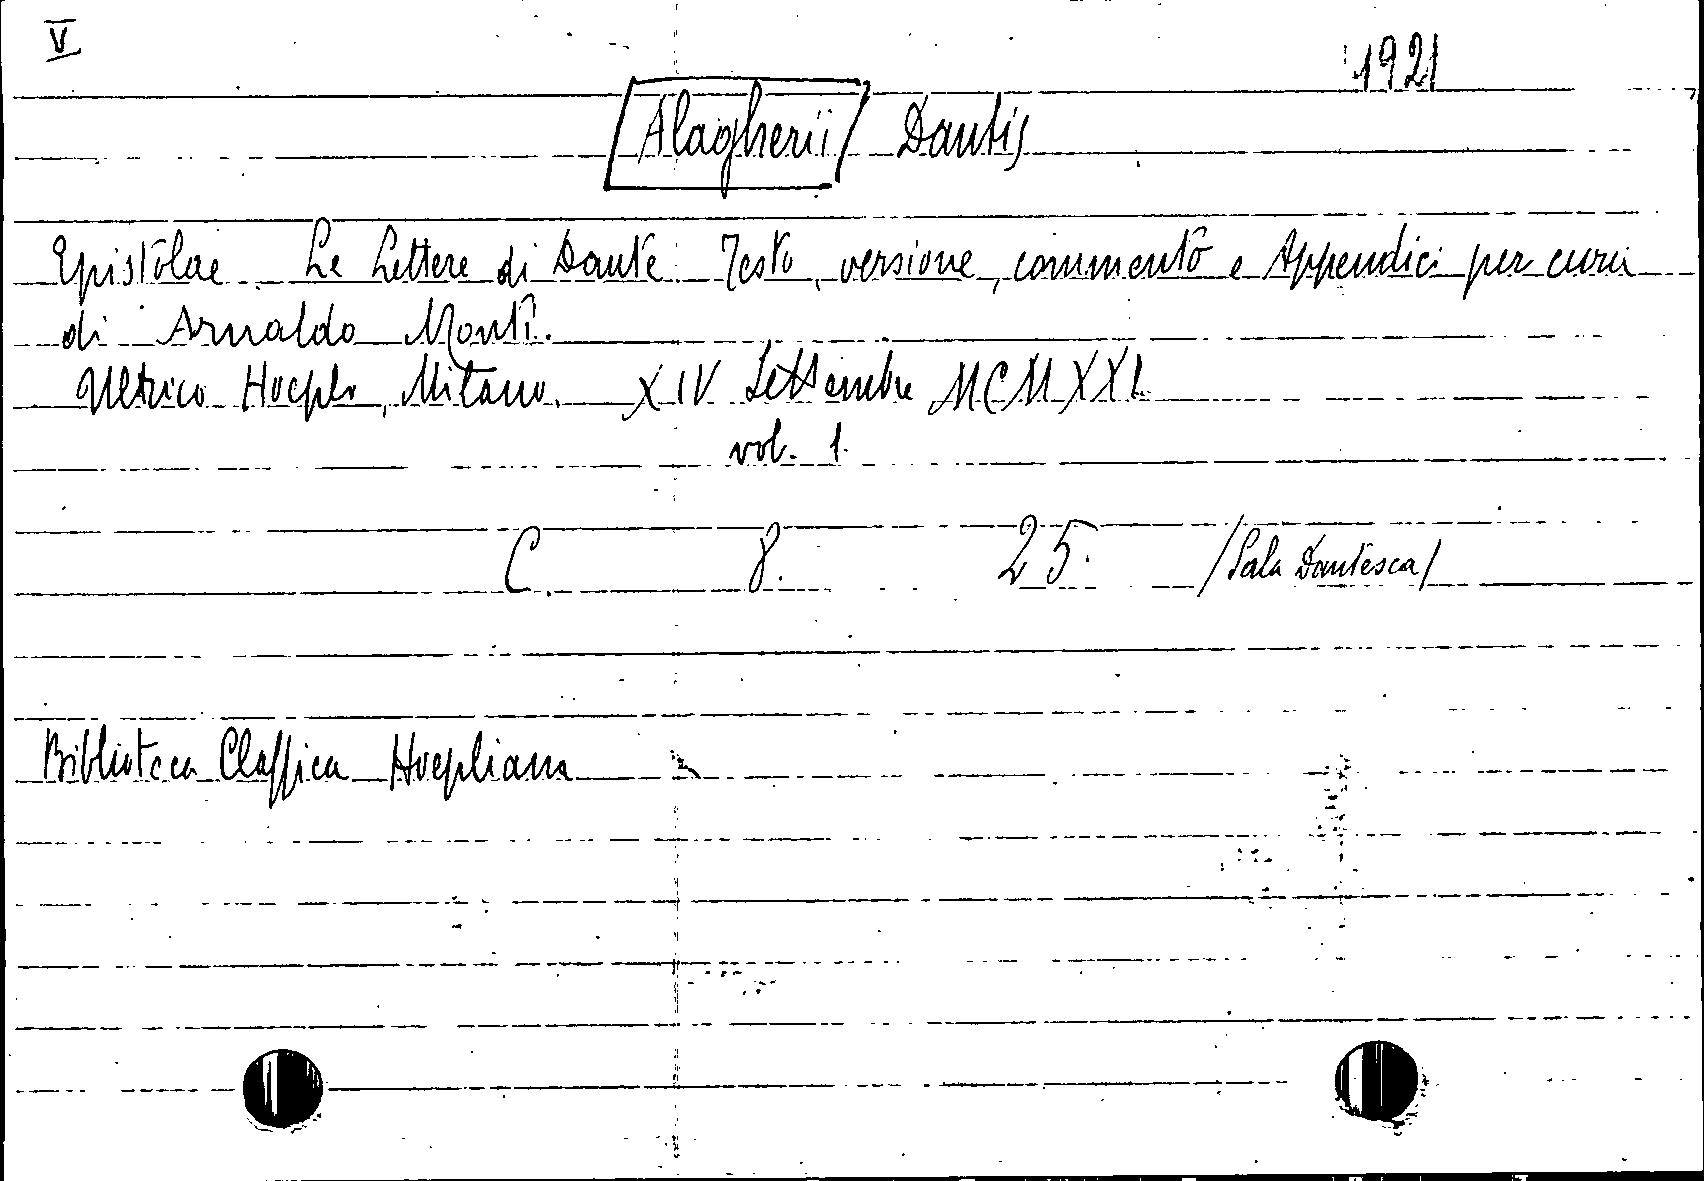 V
1921
Alagherii / Dantis
Epistolae. Le Lettere di Dante. Testo, versione, commento e Appendici per cura
di Arnaldo Monti.
Ulrico Hoepli, Milano. XIV Settembre MCMXXI.
vol. 1.
C. 8. 25. /Sala Dantesca/
Biblioteca Classica Hoepliana